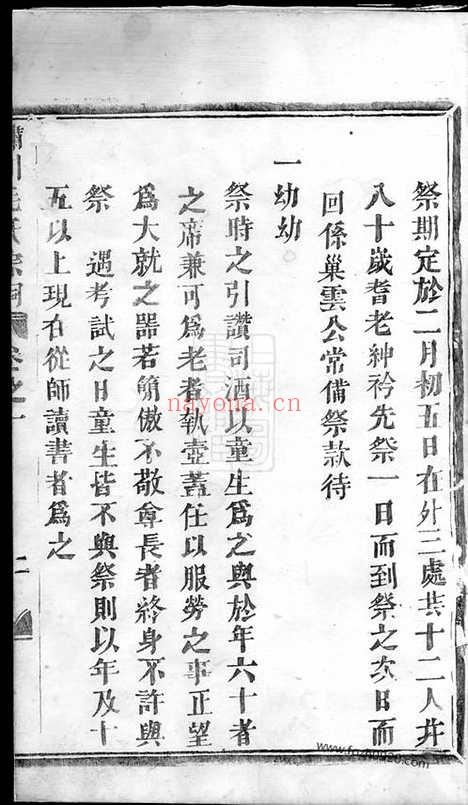 祭期定於二月初五日在外三處共十二人并
八十歲耆老紳衿先祭一日而到祭之次日而
回係巢雲公常備祭款待
一幼幼
祭時之引讚司酒以童生爲之與於年六十者
之席兼可爲老者執壺蓋任以服勞之事正望
爲大就之器若簡傲不敬尊長者終身不許與
祭　遇考試之日童生皆不與祭則以年及十
五以上現在從師讀書者爲之
氏宗祠 卷之一
二
nayona.cn